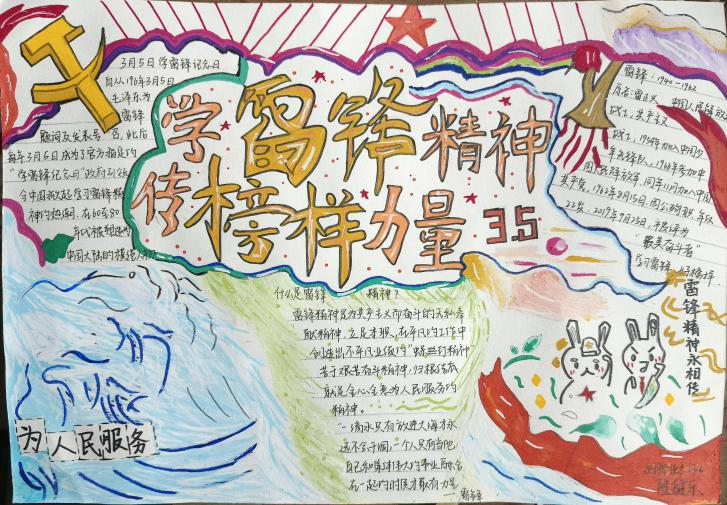 学雷锋精神
传榜样力量 3.5
3月5日学雷锋纪念日
毛泽东为
雷锋
每年3月5日成为了官方指定的
"学雷锋纪念日"
全中国掀起学习雷锋精
神的热潮,在60至80
年代被塑造为
雷锋:1940-1962
原名:雷正兴
战士,共产主义
战士,1954年加入中国少
年先锋队,1960年参加中
国人民解放军,同年11月加入中国
共产党,1962年8月15日,因公殉职,年仅
22岁,2019年9月25日,被评为
"最美奋斗者"
学习雷锋 好榜样
雷锋精神永相传
什么是雷锋 精神?
雷锋精神是为共产主义而奋斗的无私奉
献精神,立足本职,在平凡的工作中
创造出不平凡业绩的"螺丝钉精神
苦干艰苦奋斗精神,归根结底
就是全心全意为人民服务的
精神。
"一滴水只有放进大海才永
远不会干涸,一个人只有当他
自己和集体事业融合
在一起的时候才最有力量
—雷锋
为人民服务